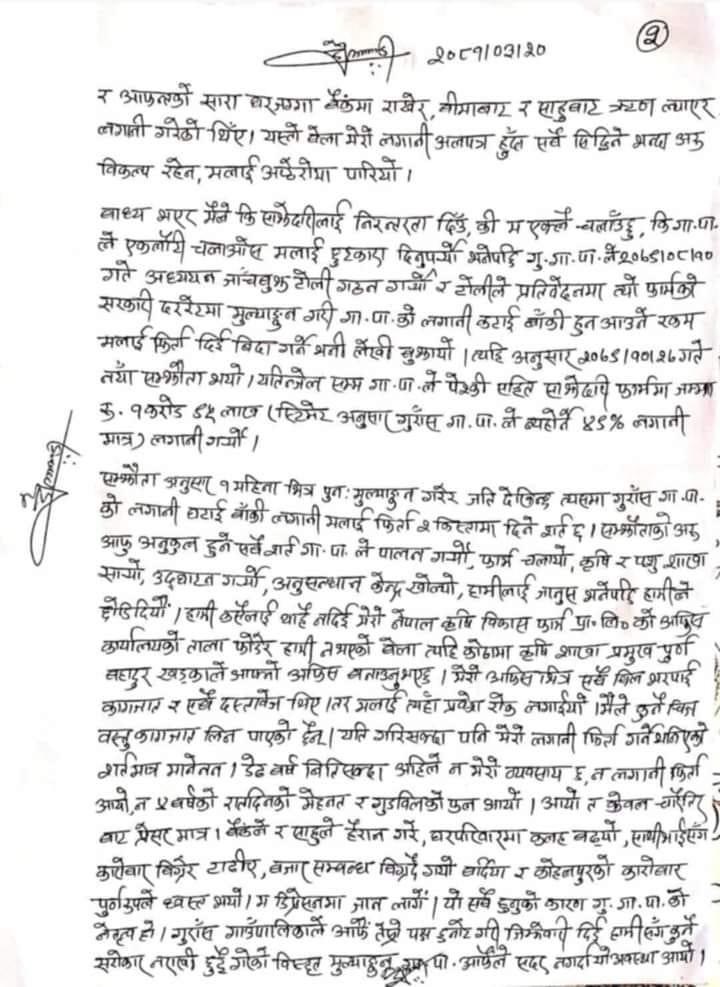 २
२०८१/०३/२०
र आफन्तको सारा घरजग्गा बैंकमा राखेर, बीमाबाट र साहुबाट ऋण ल्याएर
लगानी गरेको थिएँ। यस्तो बेला मेरो लगानी अलपत्र हुँदा सबै सिद्धिने भन्दा अरु
विकल्प रहेन, मलाई अप्ठेरोमा पारियो।
बाध्य भएर मैले कि साझेदारीलाई निरन्तरता दिउँ, की म एक्लै चलाउँछु, कि गा.पा.
ले एकलौटी चलाओस मलाई छुटकारा दिनुपर्यो भनेपछि गु.गा.पा. ले २०७९/०८/१०
गते अध्ययन जाँचबुझ टोली गठन गर्यो र टोलीले प्रतिवेदनमा त्यो फार्मको
सरकारी दररेटमा मुल्याङ्कन गरी गा.पा. को लगानी कटाई बाँकी हुन आउने रकम
मलाई फिर्ता दिई बिदा गर्ने भनी लेखी बुझायो। त्यहि अनुसार २०७९/१०/२६ गते
नयाँ सम्झौता भयो। यतिन्जेल सम्म गा.पा. ले पेश्की सहित साझेदारी फार्ममा जम्मा
रु. १ करोड ६५ लाख (स्टिमेट अनुसार गुराँस गा.पा. ले व्यहोर्ने ४९% लगानी
मात्र) लगानी गर्यो।
सम्झौता अनुसार १ महिना भित्र पुनः मुल्याङ्कन गरेर जति देखिन्छ त्यसमा गुराँस गा.पा.
को लगानी घटाई बाँकी लगानी मलाई फिर्ता २ किस्तामा दिने शर्त छ। सम्झौताको अरु
आफु अनुकुल हुने सबै शर्त गा.पा. ले पालना गर्यो, फार्म चलायो, कृषि र पशु शाखा
सार्यो, उद्घाटन गर्यो, अनुसन्धान केन्द्र खोल्यो, हामीलाई जानुस भनेपछि हामीले
छोडिदियौं। हामी कसैलाई थाहै नदिई मेरो नेपाल कृषि विकास फार्म प्रा.लि० को अफिस
कार्यालयको ताला फोडेर हामी नभएको बेला त्यहि कोठामा कृषि शाखा प्रमुख पुर्ण
बहादुर खड्काले आफ्नो अफिस बनाउनुभएछ। मेरो अफिस भित्र सबै बिल भरपाई
कागजात र सबै दस्तावेज थिए। तर मलाई त्यहाँ प्रवेश रोक लगाईयो। मैले कुनै चिज
वस्तु कागजात लिन पाएको छैन। यति गरिसक्दा पनि मेरो लगानी फिर्ता गर्ने भनिएको
शर्तमात्र मानेनन। डेढ वर्ष बितिसक्दा अहिले न मेरो व्यवसाय छ, न लगानी फिर्ता
आयो, न ४ वर्षको रातदिनको मेहनत र गुडविलको फल आयो। आयो त केवल चारैतिर
बाट प्रेसर मात्र। बैंकले र साहुले हैरान गरे, घरपरिवारमा कलह बढ्यो, साथीभाईसँग
कारोबार बिग्रेर टाढीए, बजार सम्बन्ध बिग्रदै गयो बर्दिया र कोहलपुरको कारोबार
पुर्णरुपले ध्वस्त भयो। म डिप्रेसनमा जान लागें। यो सबै हुनुको कारण गु.गा.पा. को
नेतृत्व हो। गुराँस गाउँपालिकाले आफैं तेश्रो पक्ष छनोट गरी जिम्मेवारी दिई हामीसँग कुनै
सरोकार नराखी हुँदै गरेको विस्तृत मुल्याङ्कन गा.पा. आफैंले सदर नगर्दा यो अवस्था आयो।